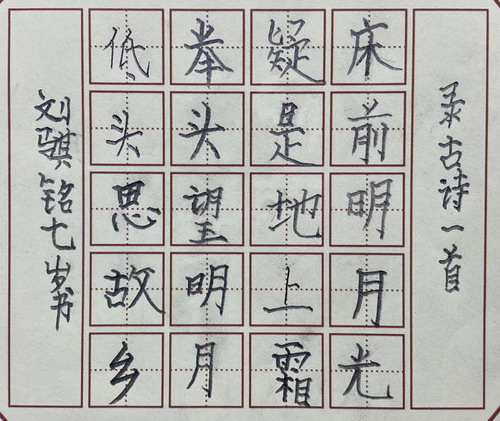 录古诗一首
床前明月光
疑是地上霜
举头望明月
低头思故乡
刘骐铭七岁书